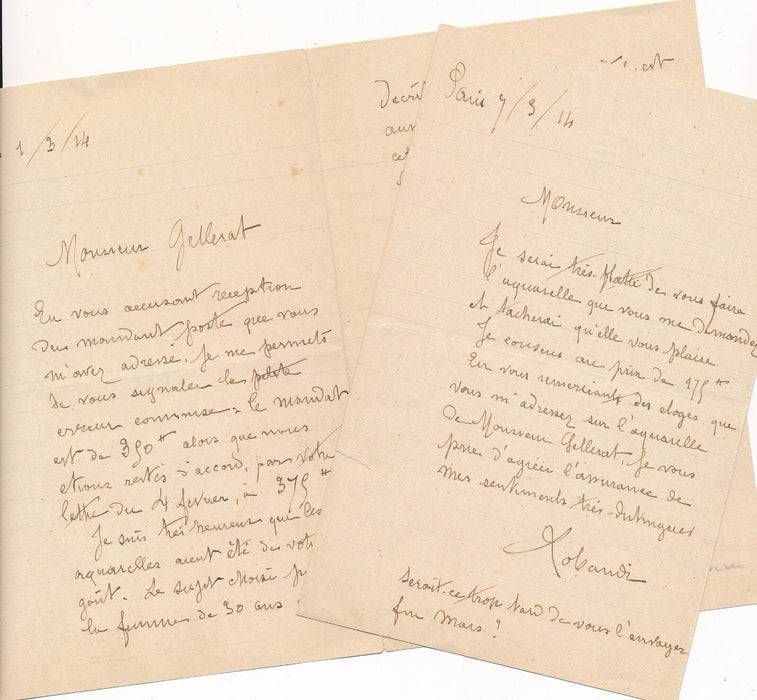 1/3/14
Monsieur Gellerat
En vous accusant reception
du mandant poste que vous
m'avez adressé. Je me permets
de vous signaler la petite
erreur commise : le mandat
est de 350 ᶠᶠ alors que nous
etions restés d'accord, par votre
lettre du 4 fevrier, à 375 ᶠᶠ
Je suis très heureux que les
aquarelles aient été de votr
goût. Le sujet choisi p
la femme de 30 ans
est
décri
aux
cet
Paris 7/3/14
Monsieur
Je serai très flatté de vous faire
l'aquarelle que vous me demandez
et tacherai qu'elle vous plaise
Je consens au prix de 175 ᶠᶠ
En vous remerciant des eloges que
vous m'adressez sur l'aquarelle
de Monsieur Gellerat, Je vous
prie d'agréer l'assurance de
mes sentiments très distingués
Robaudi
serait-ce trop tard de vous l'envoyer
fin Mars ?